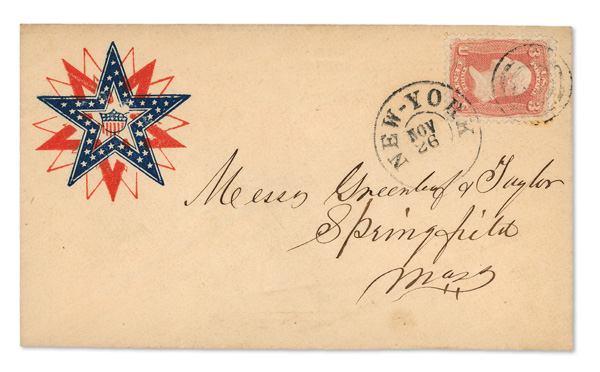 NEW-YORK
NOV
26
3 3
U
Messrs Greenleaf & Taylor
Springfield
Mass